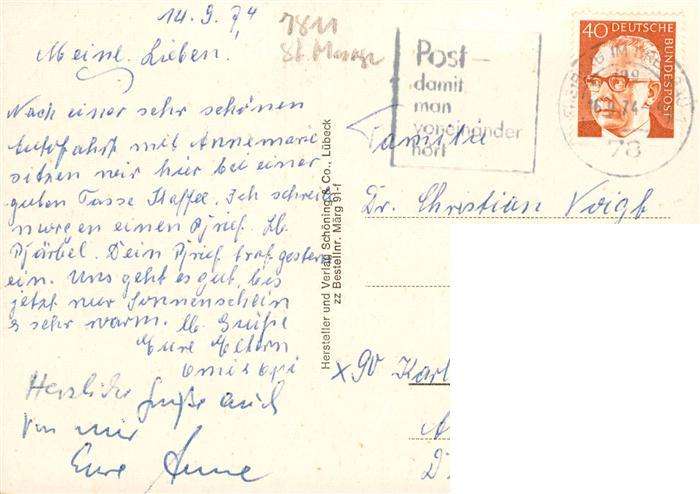 14.9.74
Meine Lieben.
Nach einer sehr schönen
Autofahrt mit Annemarie
sitzen wir hier bei einer
guten Tasse Kaffee. Ich schreibe
morgen einen Brief. Lb.
Bärbel. Dein Brief traf gestern
ein. Uns geht es gut, bis
jetzt nur Sonnenschein
& sehr warm. Lb. Grüße
Eure Eltern
Omi & Opi
Herzliche Grüße auch
von mir
Eure Anne
7811
St. Märgen
Hersteller und Verlag Schöning & Co., Lübeck
zz Bestellnr. Märg 91-f
Post-
damit
man
voneinander
hört
40 DEUTSCHE
BUNDESPOST
74
78
Familie
Dr. Christian Voigt
X90 Karl
A
D